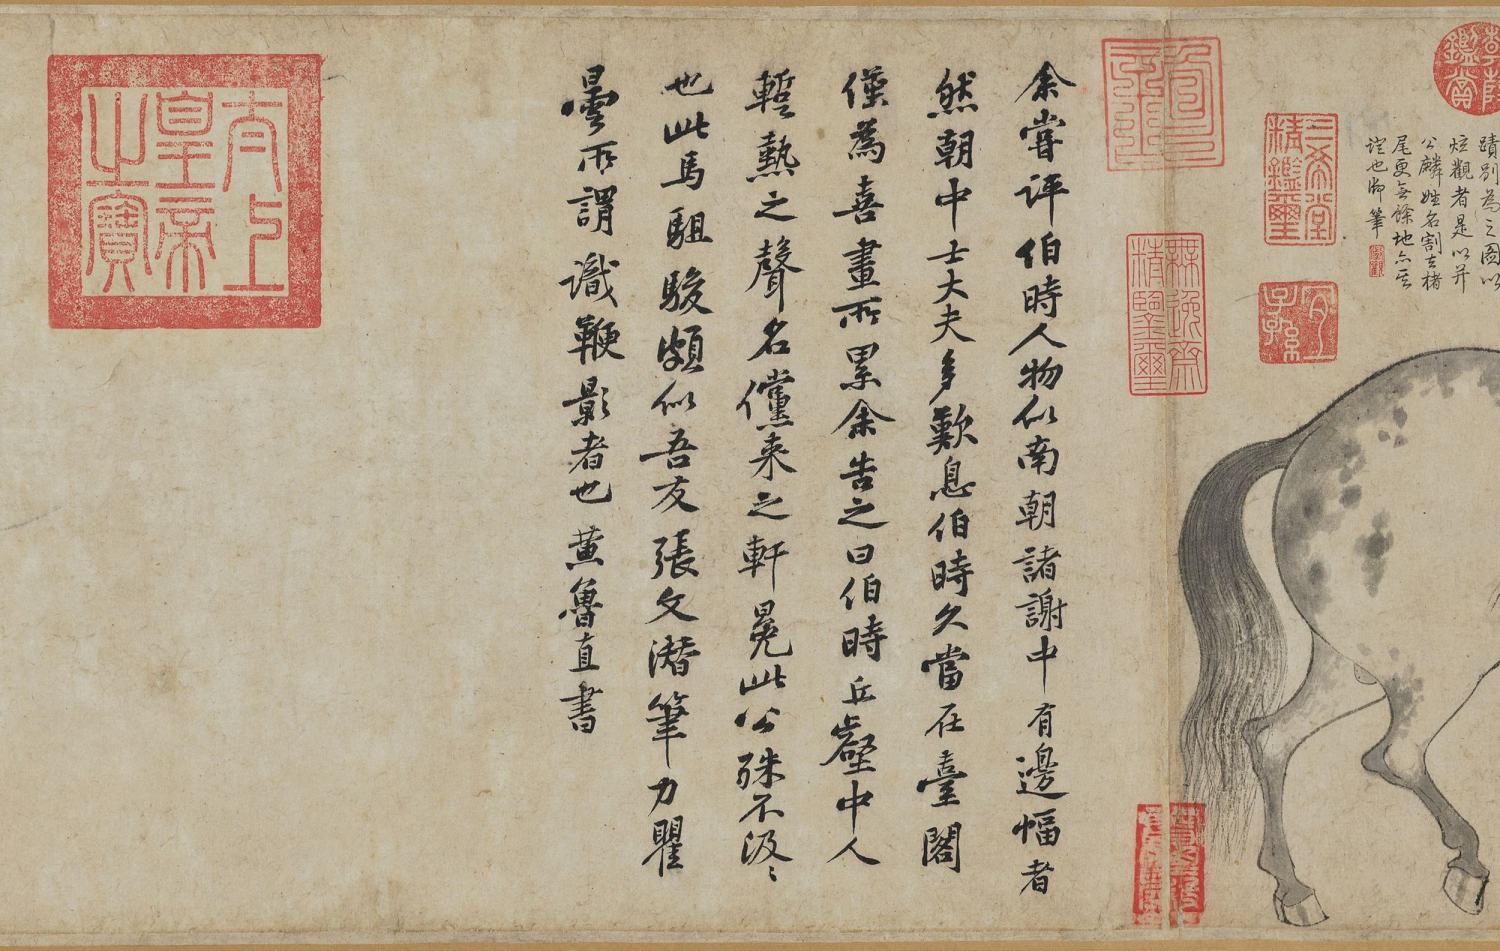 蹟別為之圖以
炫觀者是以并
公麟姓名割去楮
尾更無餘地亦其
證也御筆
三希堂
精鑑璽
宜
子孫
無逸齋
精鑒璽
余嘗評伯時人物似南朝諸謝中有邊幅者
然朝中士大夫多歎息伯時久當在臺閣
僅為喜畫所累余告之曰伯時丘壑中人
蹔熱之聲名儻来之軒冕此公殊不汲〻
也此馬駔駿頗似吾友張文潜筆力瞿
曇所謂識鞭影者也黄魯直書
太上
皇帝
之寶